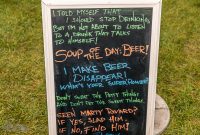 I TOLD MYSELF THAT
I SHOULD STOP DRINKING,
BUT I'M NOT ABOUT TO LISTEN
TO A DRUNK THAT TALKS
TO HIMSELF!
SOUP OF THE DAY: BEER!
I MAKE BEER
DISAPPEAR!
WHAT'S YOUR SUPERPOWER?
DON'T SWEAT THE PETTY THINGS
AND DON'T PET THE SWEATY THINGS
SEEN MARTY ROWARD?
IF YES, SLAP HIM
IF NO, FIND HIM!